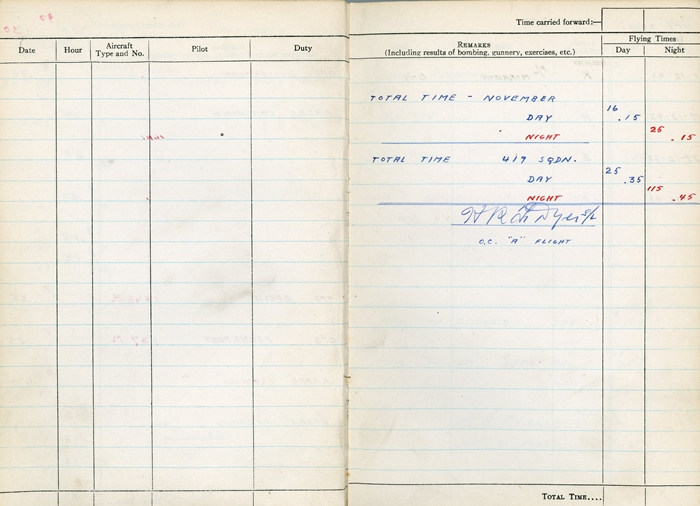 Time carried forward:—
Date Hour Aircraft Type and No. Pilot Duty
REMARKS
(Including results of bombing, gunnery, exercises, etc.)
Flying Times
Day Night
TOTAL TIME - NOVEMBER
DAY 16 .15
NIGHT 25 .15
TOTAL TIME 419 SQDN.
DAY 25 .35
NIGHT 115 .45
O.C. "A" FLIGHT
TOTAL TIME....